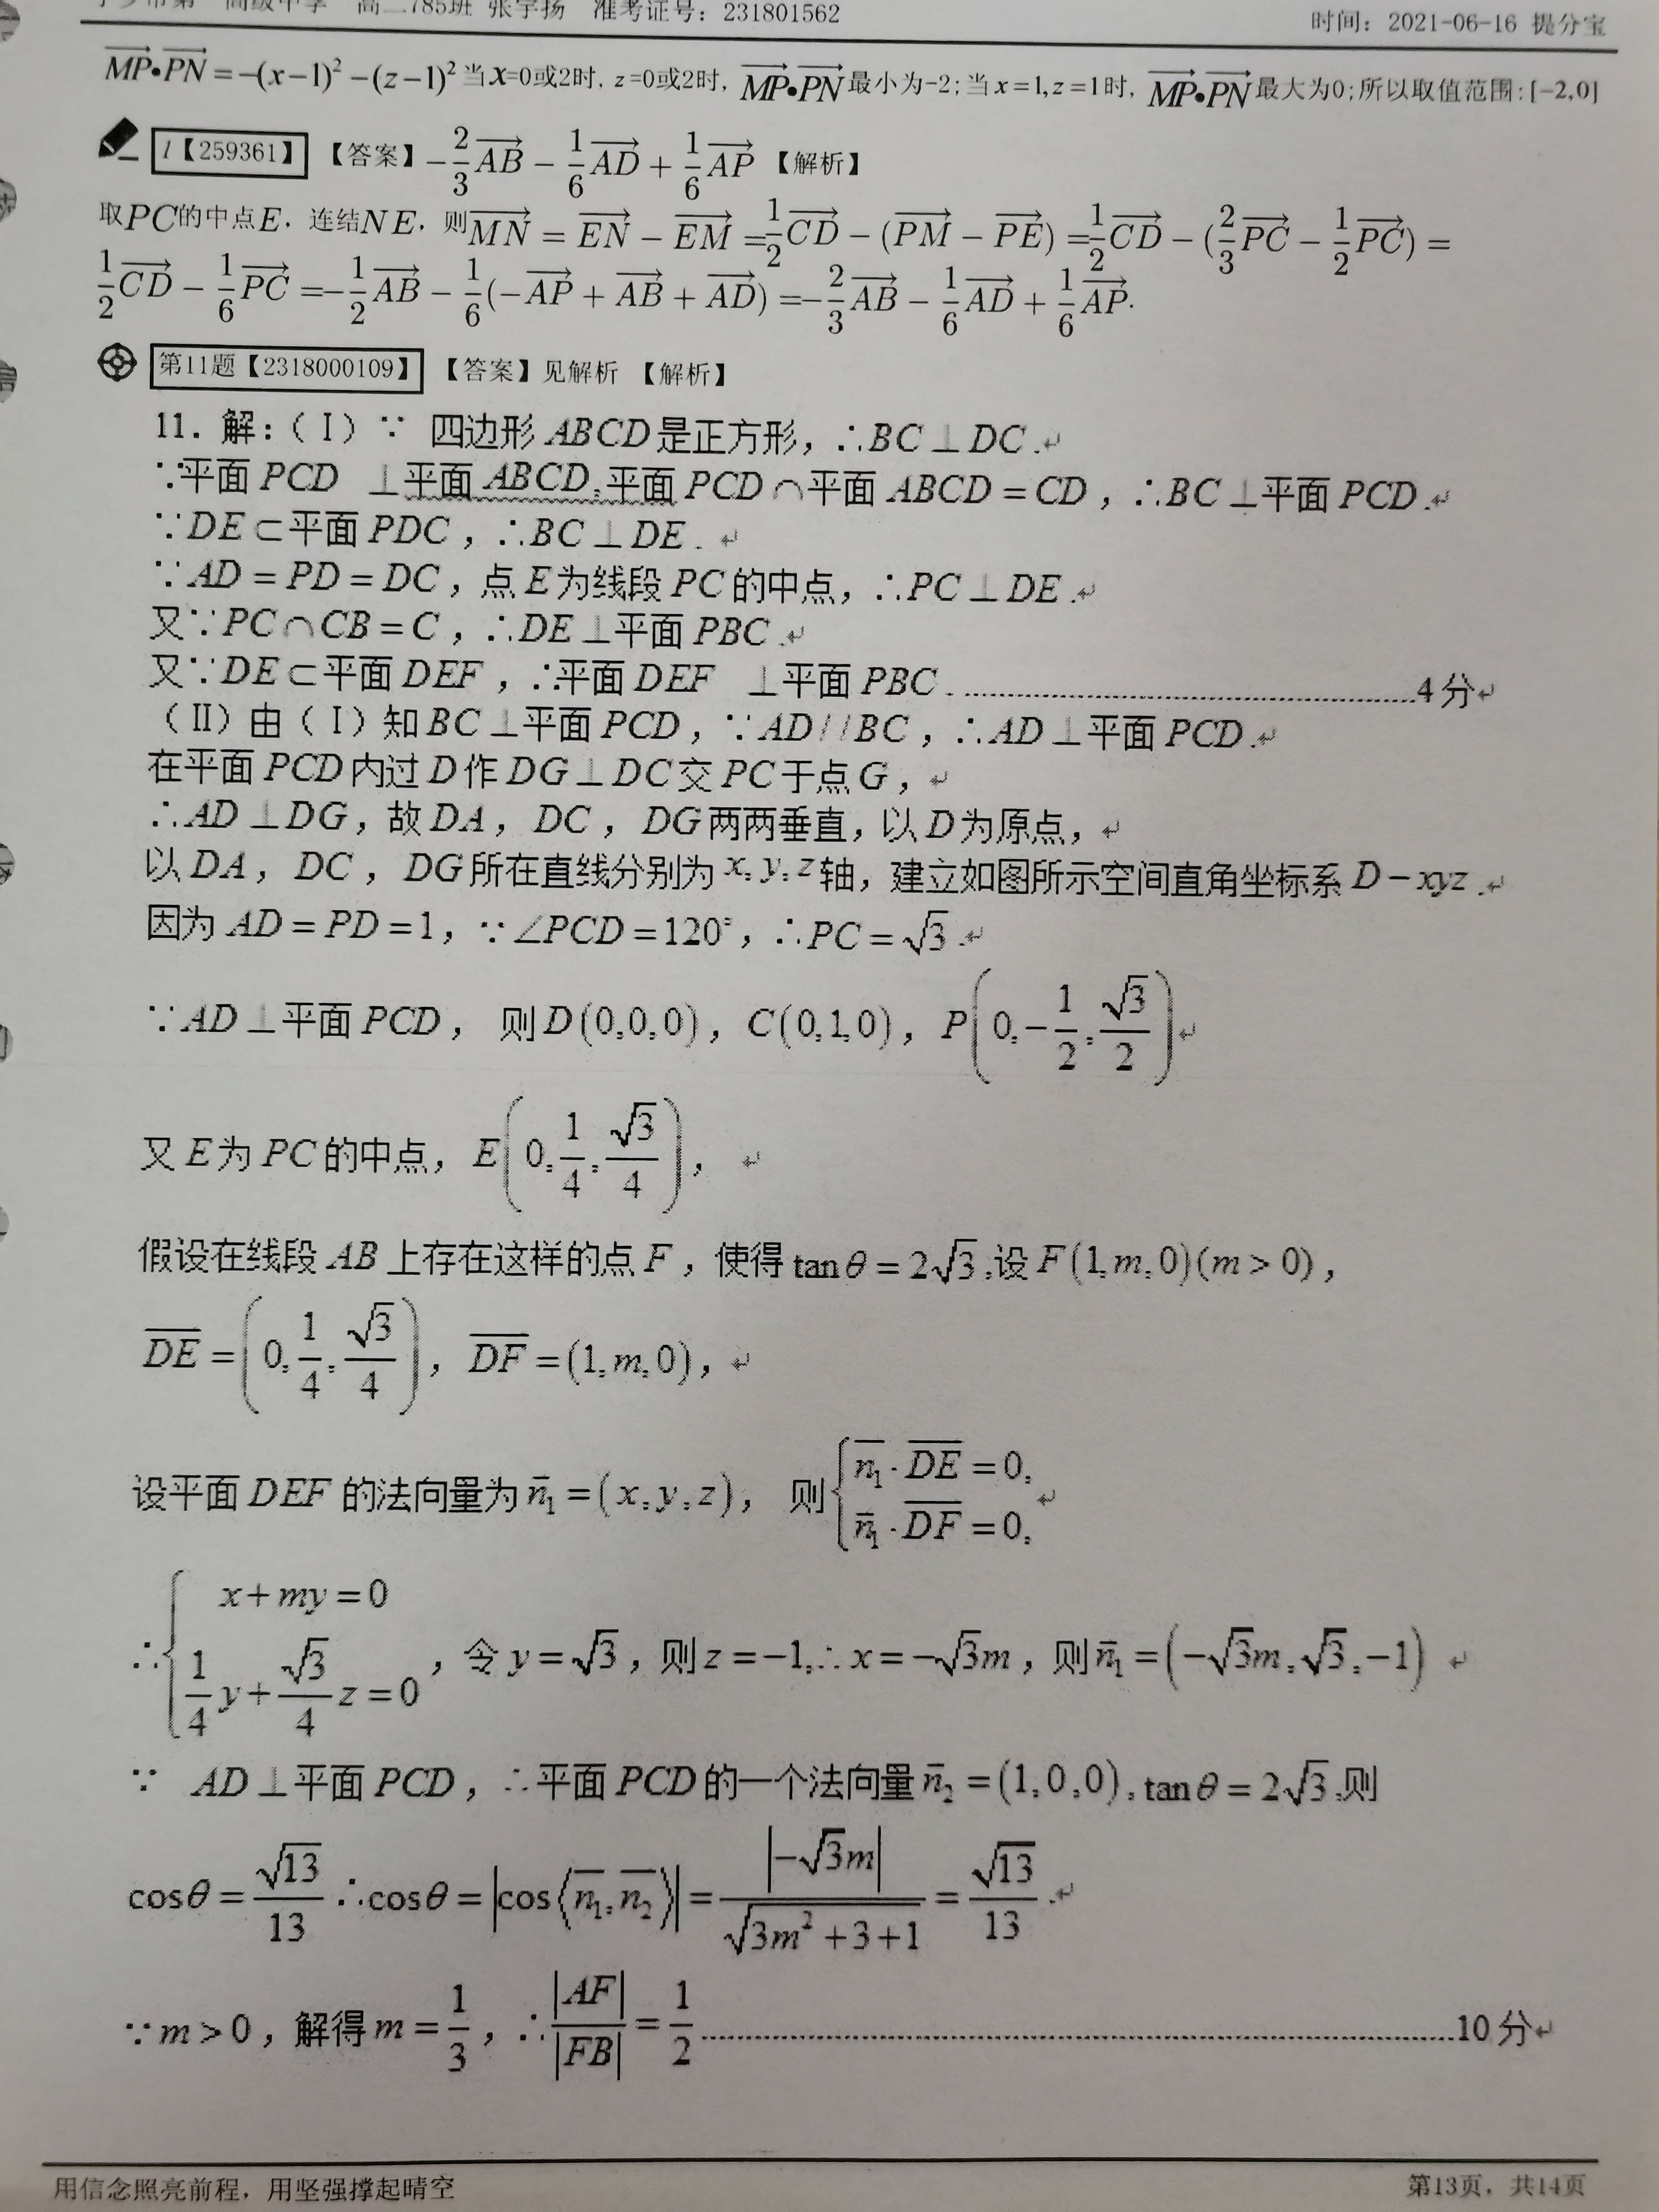 高二785班 张宇扬 准考证号：231801562 时间：2021-06-16 提分宝
MP•PN=-(x-1)²-(z-1)²当x=0或2时，z=0或2时，MP•PN最小为-2；当x=1,z=1时，MP•PN最大为0；所以取值范围：[-2,0]
1【259361】 【答案】-2/3AB-1/6AD+1/6AP 【解析】
取PC的中点E．连结NE．则MN=EN-EM=1/2CD-(PM-PE)=1/2CD-(2/3PC-1/2PC)=
1/2CD-1/6PC=-1/2AB-1/6(-AP+AB+AD)=-2/3AB-1/6AD+1/6AP.
第11题【2318000109】 【答案】见解析 【解析】
11．解：（Ⅰ）∵ 四边形ABCD是正方形，∴BC⊥DC.
∵平面PCD ⊥平面ABCD,平面PCD∩平面ABCD=CD，∴BC⊥平面PCD.
∵DE⊂平面PDC，∴BC⊥DE.
∵AD=PD=DC，点E为线段PC的中点，∴PC⊥DE.
又∵PC∩CB=C，∴DE⊥平面PBC.
又∵DE⊂平面DEF，∴平面DEF ⊥平面PBC. ……4分
（Ⅱ）由（Ⅰ）知BC⊥平面PCD，∵AD//BC，∴AD⊥平面PCD.
在平面PCD内过D作DG⊥DC交PC于点G，
∴AD⊥DG，故DA，DC，DG两两垂直，以D为原点，
以DA，DC，DG所在直线分别为x,y,z轴，建立如图所示空间直角坐标系D-xyz.
因为AD=PD=1，∵∠PCD=120°，∴PC=√3.
∵AD⊥平面PCD， 则D(0,0,0)，C(0,1,0)，P(0,-1/2,√3/2)
又E为PC的中点，E(0,1/4,√3/4)，
假设在线段AB上存在这样的点F，使得tanθ=2√3,设F(1,m,0)(m>0)，
DE=(0,1/4,√3/4)，DF=(1,m,0)，
设平面DEF的法向量为n₁=(x,y,z)， 则{n₁·DE=0, n₁·DF=0,
∴{x+my=0 1/4y+√3/4z=0，令y=√3，则z=-1,∴x=-√3m，则n₁=(-√3m,√3,-1)
∵ AD⊥平面PCD，∴平面PCD的一个法向量n₂=(1,0,0),tanθ=2√3,则
cosθ=√13/13∴cosθ=|cos⟨n₁,n₂⟩|=|-√3m|/√(3m²+3+1)=√13/13.
∵m>0，解得m=1/3，∴|AF|/|FB|=1/2 ……10分
用信念照亮前程，用坚强撑起晴空 第13页，共14页